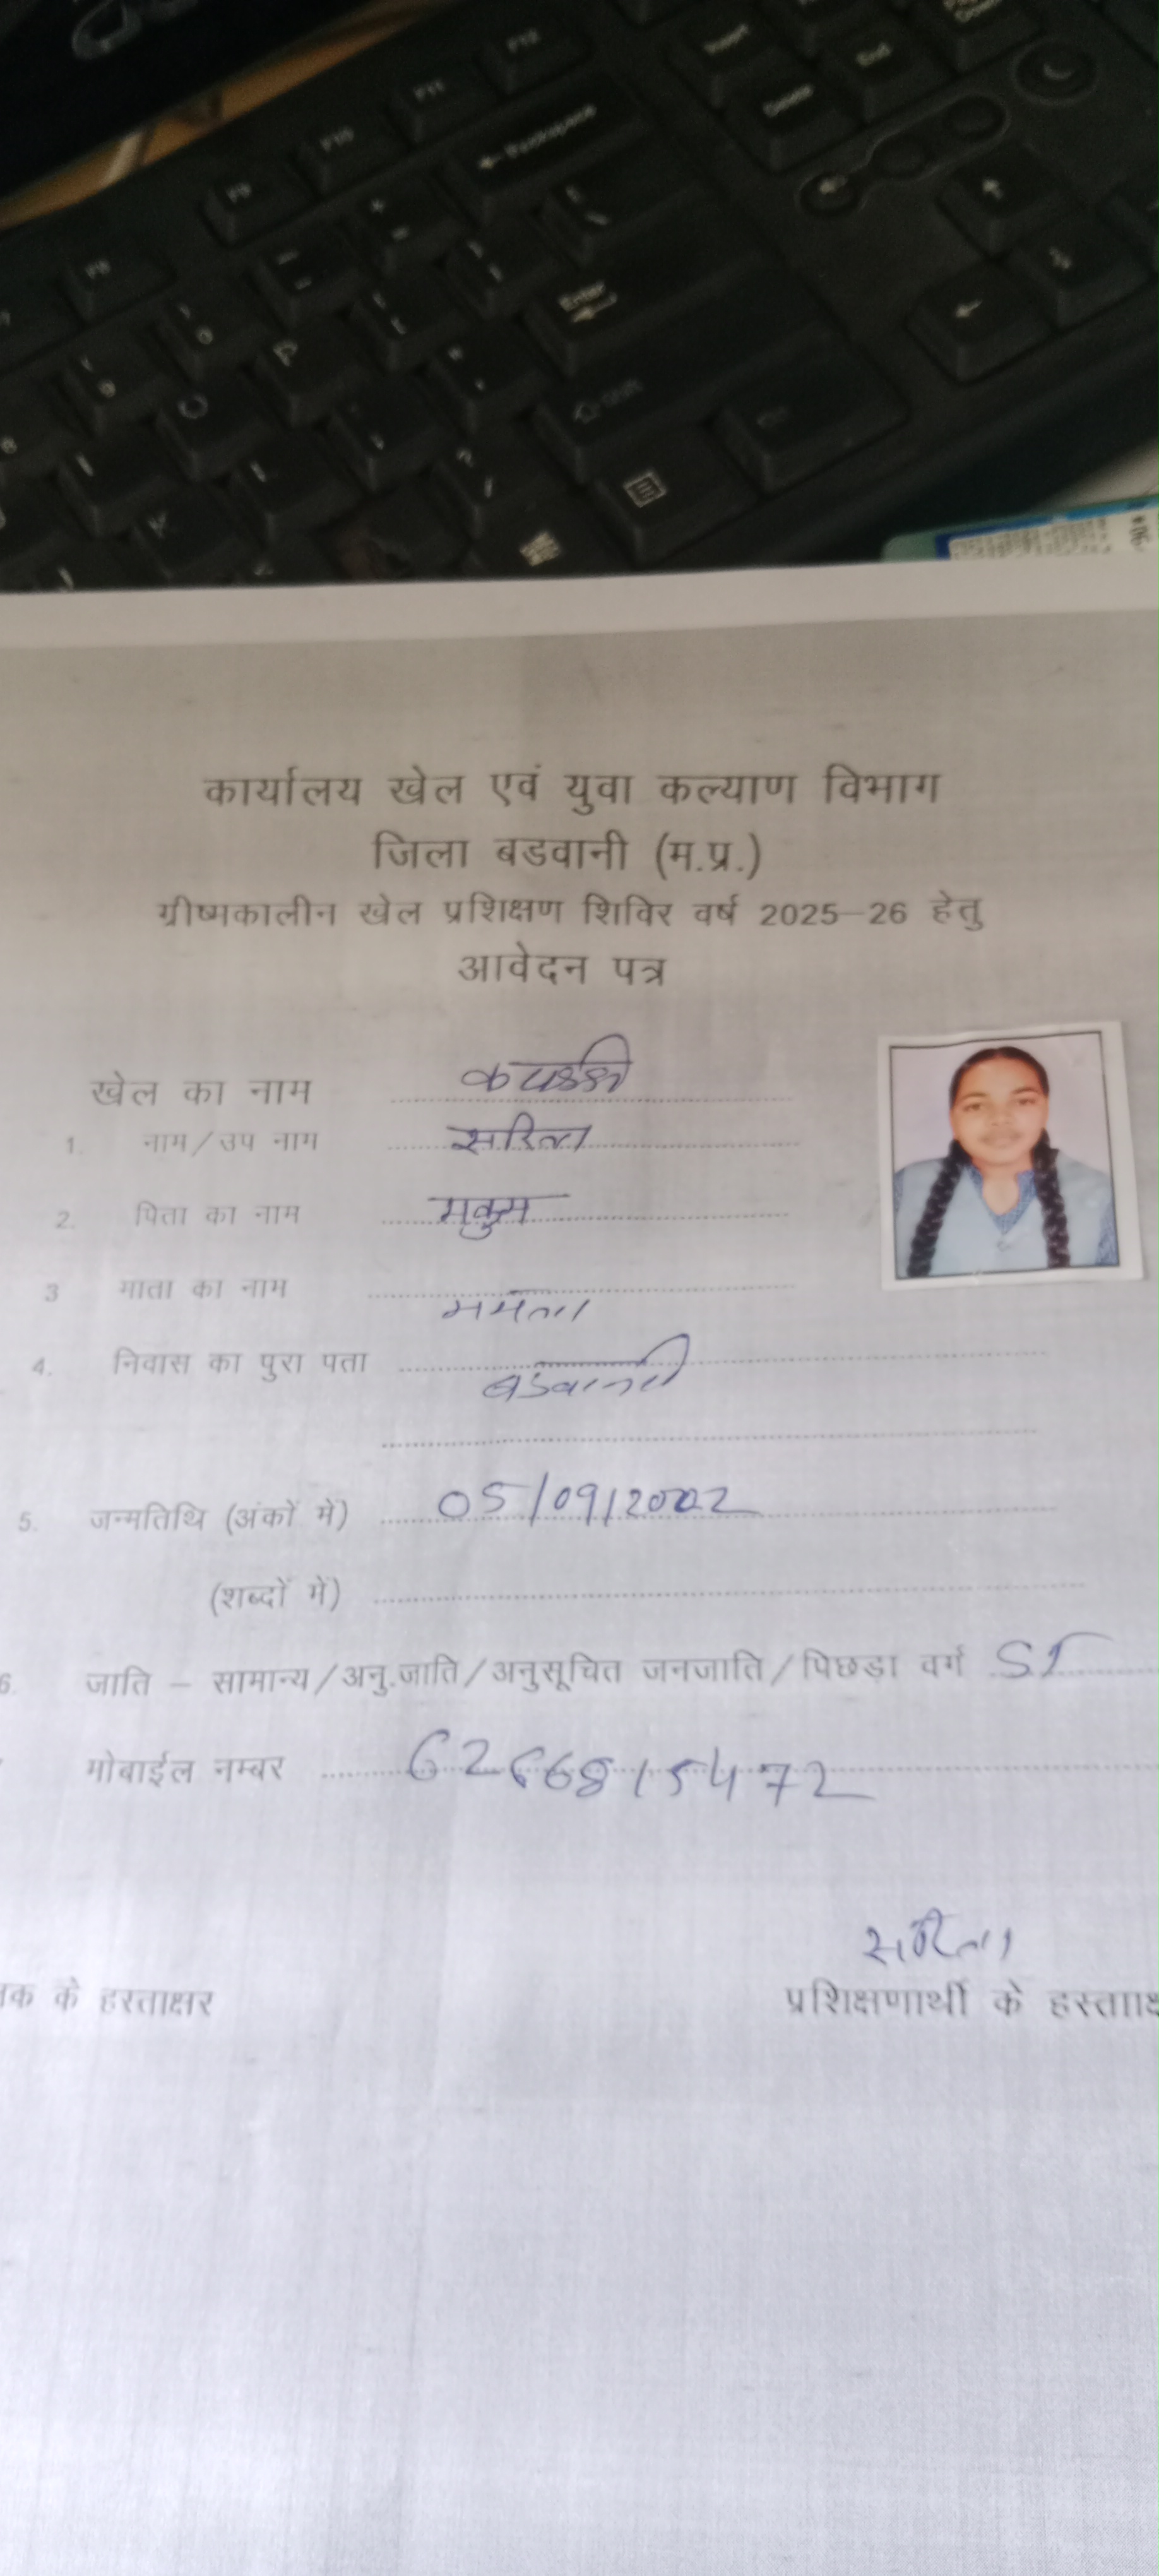 F12
F11
F10
F9
F8
← Backspace
Insert
Delete
End
Enter
Shift
कार्यालय खेल एवं युवा कल्याण विभाग
जिला बडवानी (म.प्र.)
ग्रीष्मकालीन खेल प्रशिक्षण शिविर वर्ष 2025–26 हेतु
आवेदन पत्र
खेल का नाम कबड्डी
1. नाम/उप नाम सरिता
2. पिता का नाम मकुम
3 माता का नाम ममता
4. निवास का पुरा पता बडवानी
5. जन्मतिथि (अंकों में) 05/09/2002
(शब्दों में)
6. जाति – सामान्य/अनु.जाति/अनुसूचित जनजाति/पिछड़ा वर्ग ST
मोबाईल नम्बर 6266815472
सरिता
के हस्ताक्षर प्रशिक्षणार्थी के